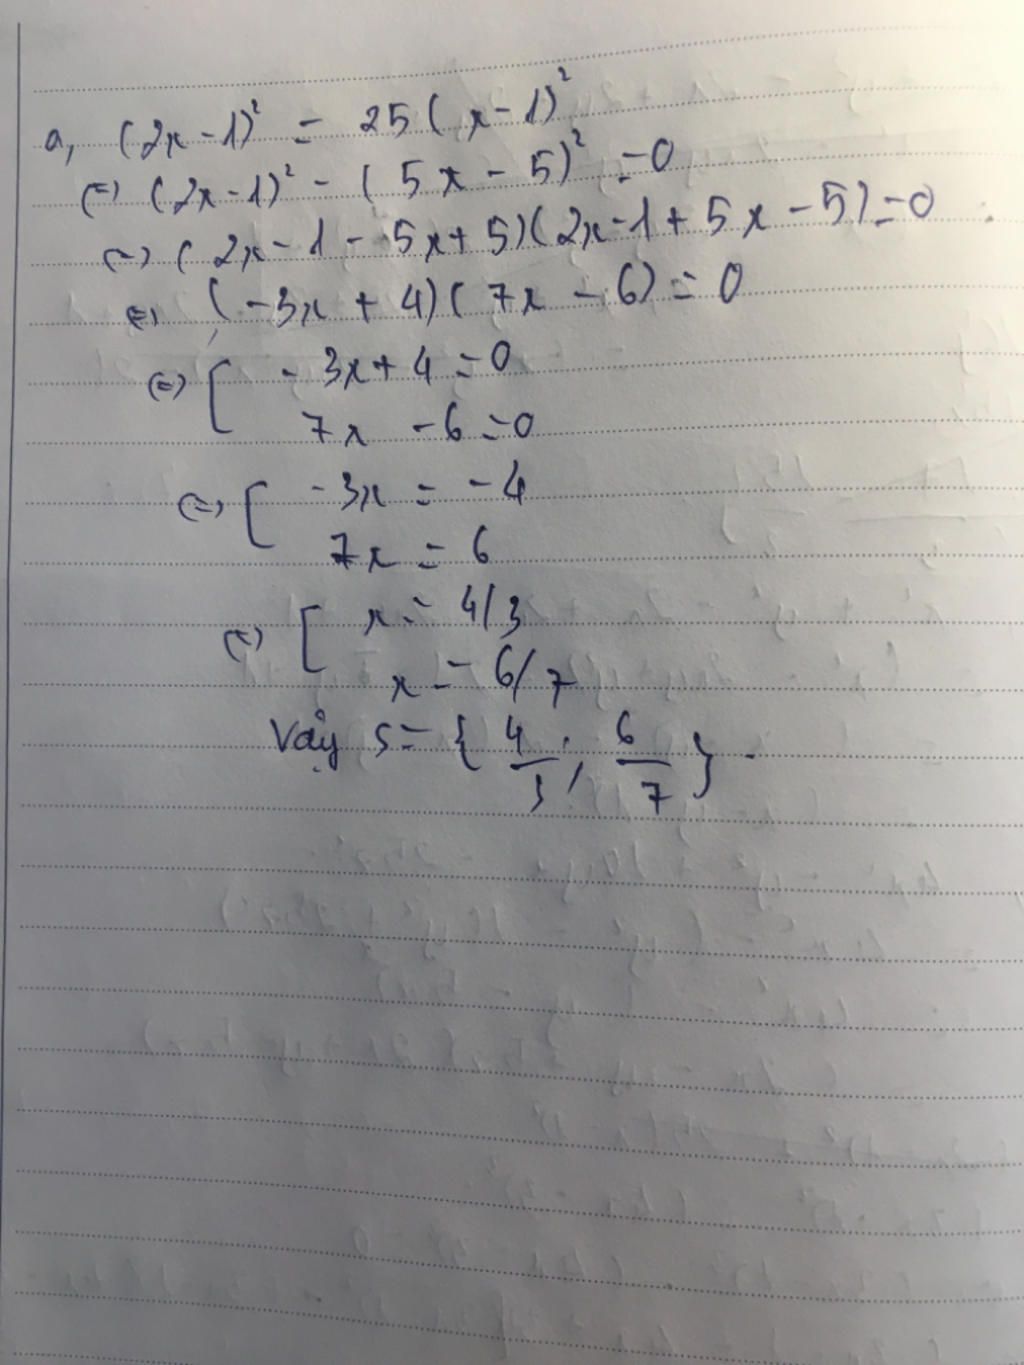 a, (2x - 1)² = 25 (x - 1)²
(=) (2x - 1)² - (5x - 5)² = 0
(=) (2x - 1 - 5x + 5)(2x - 1 + 5x - 5) = 0
(=) (-3x + 4)(7x - 6) = 0
(=) [ - 3x + 4 = 0
7x - 6 = 0
(=) [ - 3x = - 4
7x = 6
(=) [ x = 4/3
x = 6/7
Vậy S = { 4/3 ; 6/7 } .